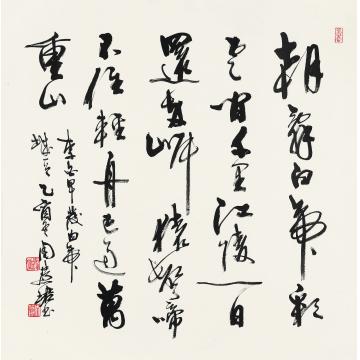 朝辭白帝彩
雲間千里江陵一日
還兩岸猿聲啼
不住輕舟已過萬
重山
李白早發白帝
城 乙亥 周慧珺書